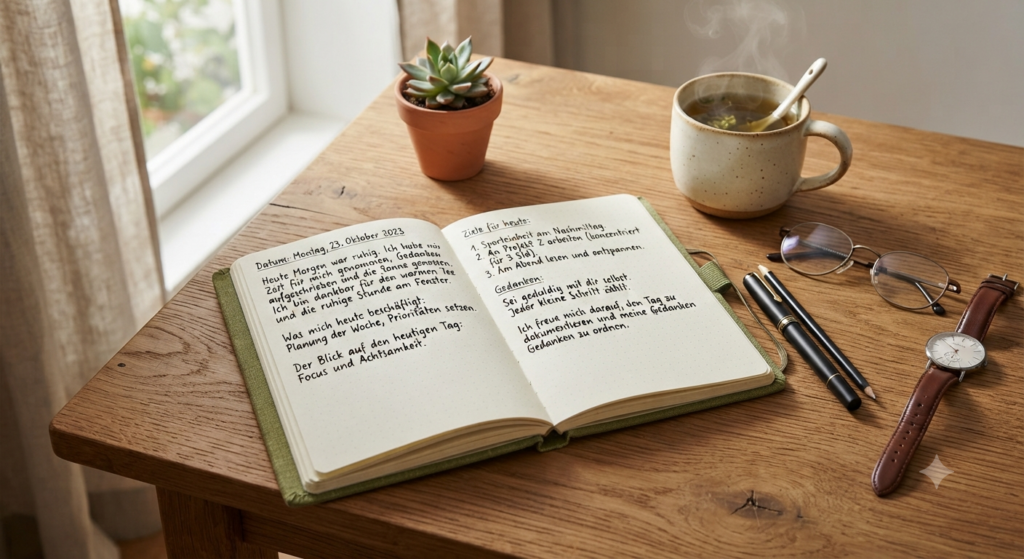 Datum: Montag, 23. Oktober 2023
Heute Morgen war ruhig. Ich habe mir
Zeit für mich genomonen, Gedanken
aufgeschrieben und die Sonne genossen.
Ich bin dankbar für den warmen Tee
und die ruhige Stunde am Fenster.
Was mich heute beschäftigt:
Planung der Woche, Prioritäten setzen.
Der Blick auf den heutigen Tag:
Focus und Achtsamkeit.
Ziele für heute:
1. Sporteinheit am Nachmittag.
2. An Projekt 2 arbeiten (konzentriert
für 3 Std).
3. Am Abend lesen und entspannen.
Gedanken:
Sei geduldig mit dir selbst.
Jeder kleine Schritt zählt.
Ich freue mich darauf, den Tag zu
dokumentieren und meine Gedanken
Gedanken zu ordnen.